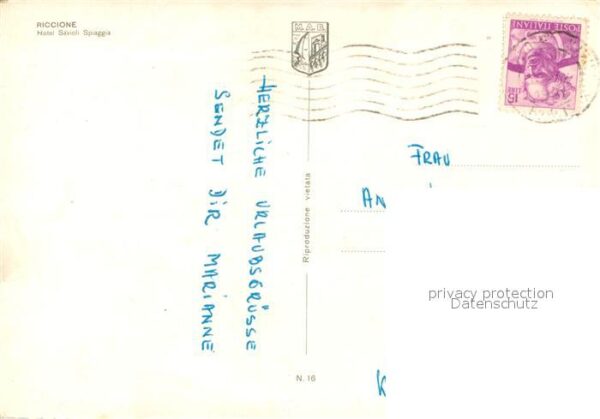 RICCIONE
Hotel Savioli Spiaggia
M.A.R.
HERZLICHE URLAUBSGRÜSSE
SENDET DIR MARIANNE
Riproduzione vietata
N. 16
POSTE ITALIANE
LIRE 15
FRAU
AN
K
privacy protection
Datenschutz